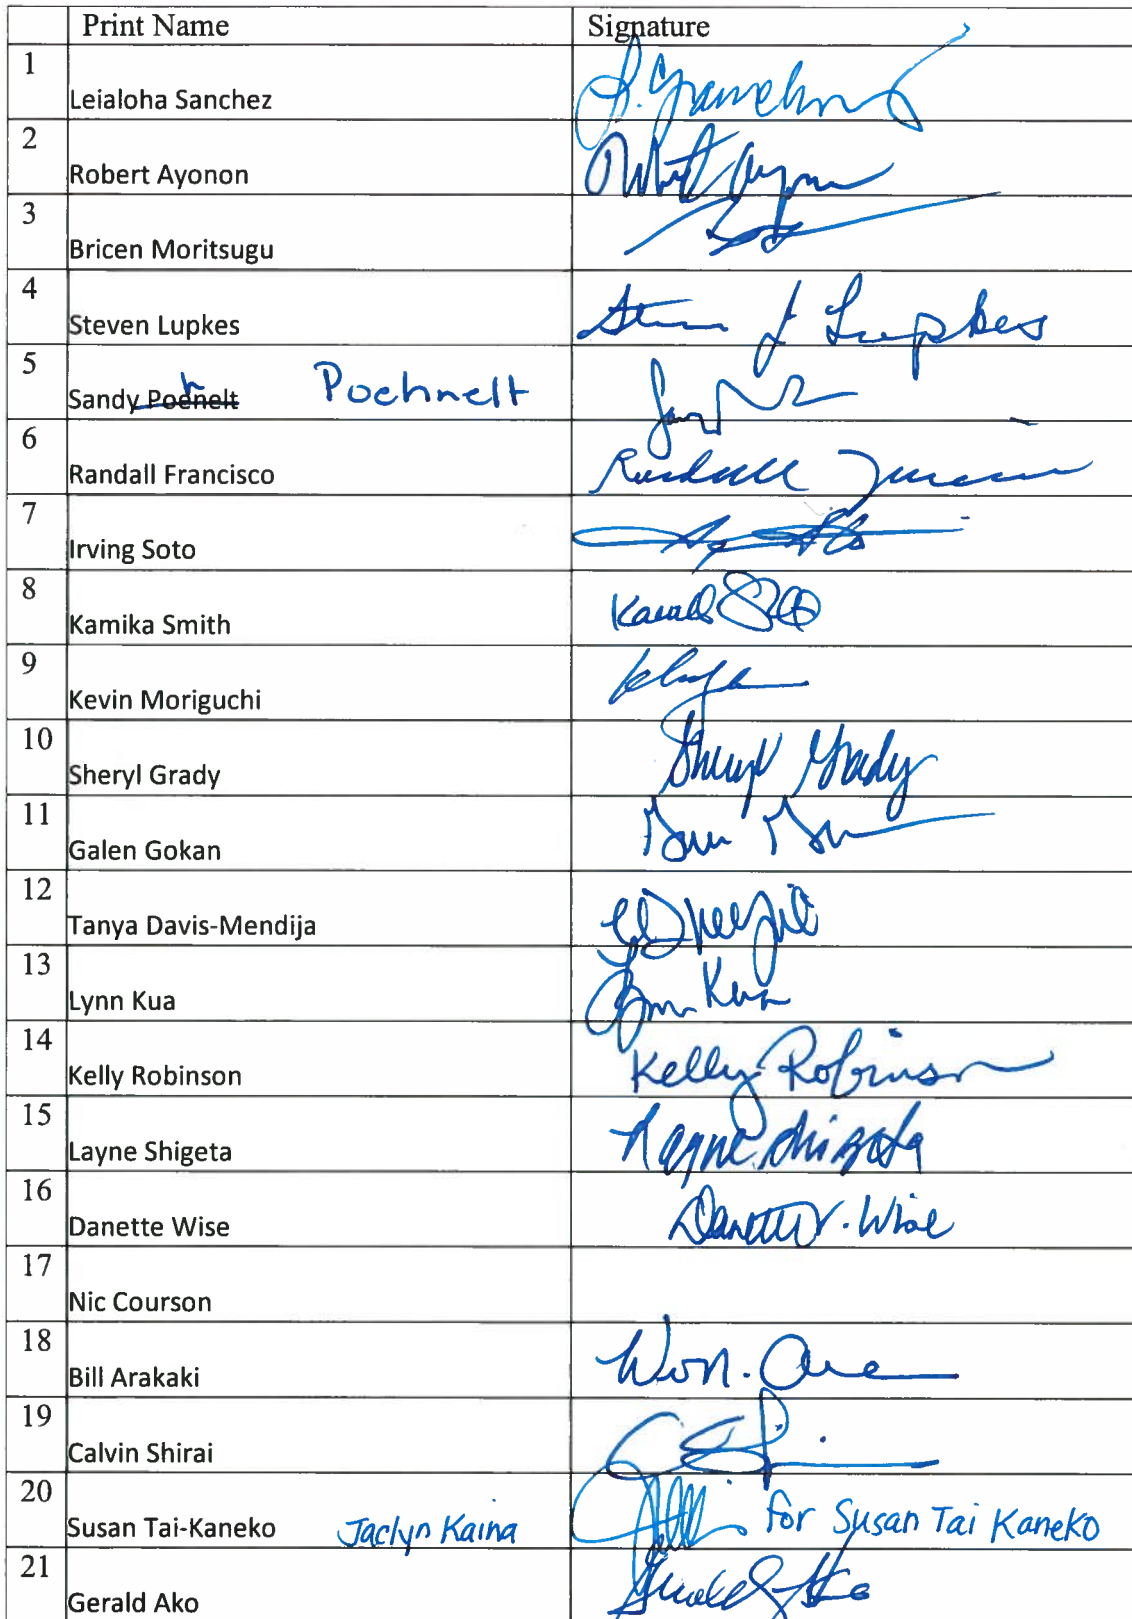 Print Name Signature
1
Leialoha Sanchez
2
Robert Ayonon
3
Bricen Moritsugu
4
Steven Lupkes Steven J Lupkes
5
Sandy Poehnelt h Poehnelt
6
Randall Francisco Randall
7
Irving Soto
8
Kamika Smith
9
Kevin Moriguchi
10
Sheryl Grady Sheryl Grady
11
Galen Gokan
12
Tanya Davis-Mendija
13
Lynn Kua Lynn Kua
14
Kelly Robinson Kelly Robinson
15
Layne Shigeta Layne Shigeta
16
Danette Wise Danette V. Wise
17
Nic Courson
18
Bill Arakaki
19
Calvin Shirai
20
Susan Tai-Kaneko Jaclyn Kaina for Susan Tai Kaneko
21
Gerald Ako Gerald Ako